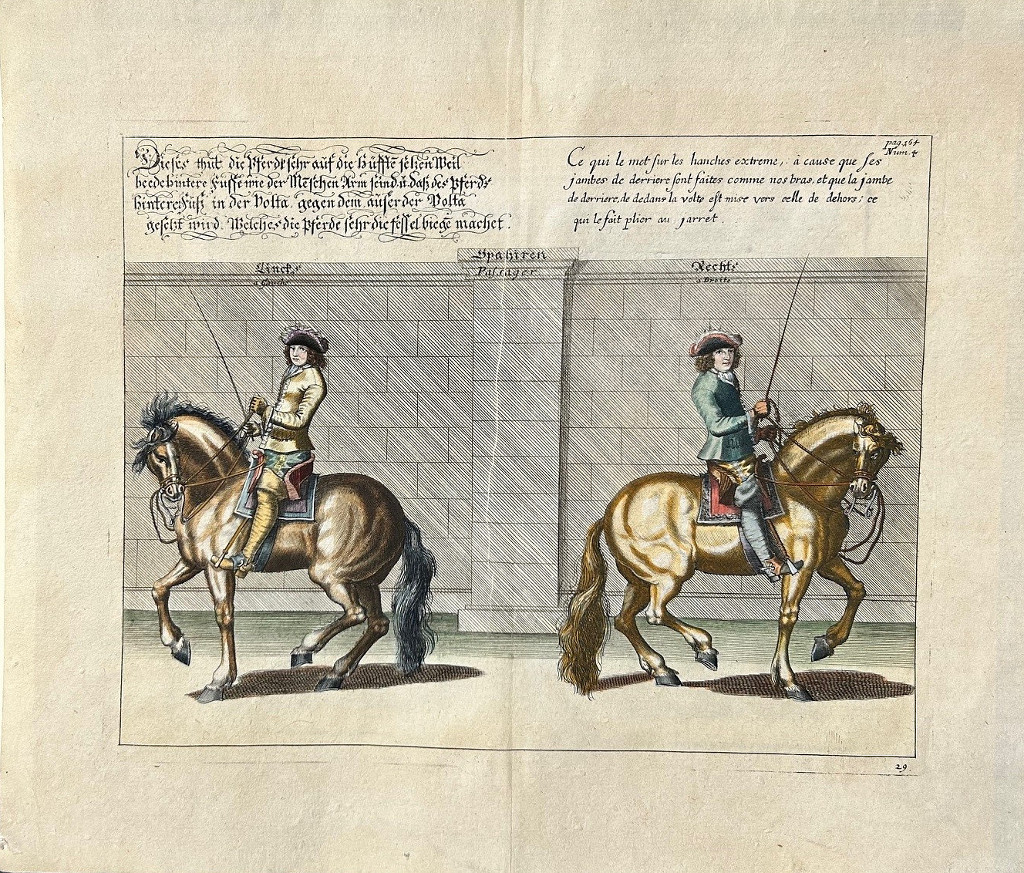 Dieses thut die Pferde sehr auf die Hüffte setzen Weil
beede hintere Füsse wie der Menschen Arm seind u daß des Pferds
hinterer Fuß in der Volta gegen dem auser der Volta
gesetzt wird. Welches die Pferde sehr die fessel biege machet.
Ce qui le met sur les hanches extreme, à cause que ses
jambes de derriere sont faites comme nos bras, et que la jambe
de derriere, de dedans la volte est mise vers celle de dehors; ce
qui le fait plier au jarret
pag. 164
Num. 4
Spahiren
Passager
Lincks
a Gauche
Rechts
a Droite
29